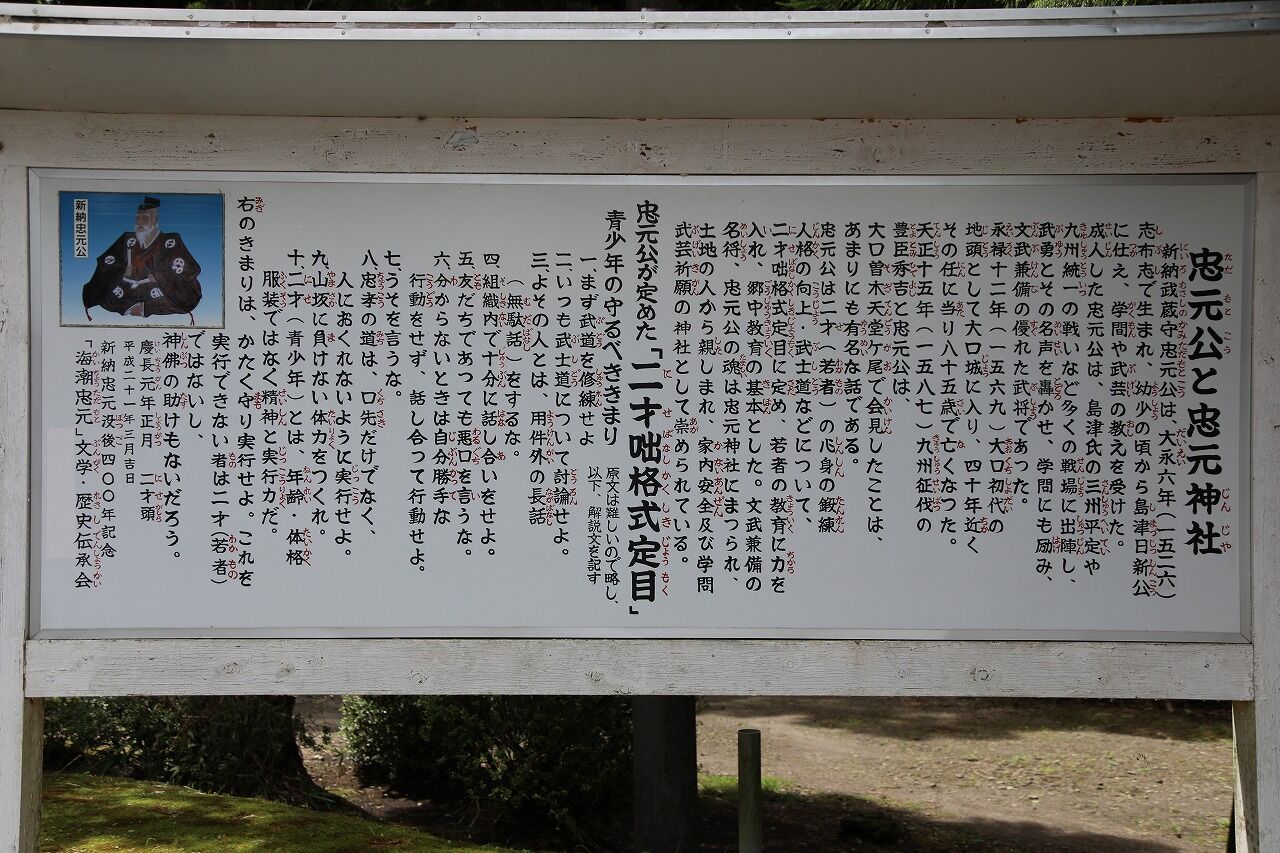 忠元公と忠元神社
新納武蔵守忠元公は、大永六年(一五二六)
志布志で生まれ、幼少の頃から島津日新公
に仕え、学問や武芸の教えを受けた。
成人した忠元公は、島津氏の三州平定や
九州統一の戦いなど多くの戦場に出陣し、
武勇とその名声を轟かせ、学問にも励み、
文武兼備の優れた武将であった。
永禄十二年(一五六九)大口初代の
地頭として大口城に入り、四十年近く
その任に当り八十五歳で亡くなった。
天正十五年(一五八七)九州征伐の
豊臣秀吉と忠元公は、
大口曽木天堂ケ尾で会見したことは、
あまりにも有名な話である。
忠元公は二才(若者)の心身の鍛練
人格の向上・武士道などについて、
二才咄格式定目に定め、若者の教育に力を
入れ、郷中教育の基本とした。文武兼備の
名将、忠元公の魂は忠元神社にまつられ、
土地の人から親しまれ、家内安全及び学問
武芸祈願の神社として崇められている。
忠元公が定めた「二才咄格式定目」
青少年の守るべききまり
原文は難しいので略し、
以下、解説文を記す
一まず武道を修練せよ
二いつも武士道について討論せよ。
三よその人とは、用件外の長話
(無駄話)をするな。
四組織内で十分に話し合いをせよ。
五友だちであっても悪口を言うな。
六分からないときは自分勝手な
行動をせず、話し合って行動せよ。
七うそを言うな。
八忠孝の道は、口先だけでなく、
人におくれないように実行せよ。
九山坂に負けない体力をつくれ。
十二才(青少年)とは、年齢・体格
服装ではなく精神と実行力だ。
右のきまりは、かたく守り実行せよ。これを
実行できない者は二才(若者)
ではないし、
神佛の助けもないだろう。
慶長元年正月 二才頭
平成二十一年三月吉日
新納忠元没後四〇〇年記念
「海潮忠元」文学・歴史伝承会
新納忠元公